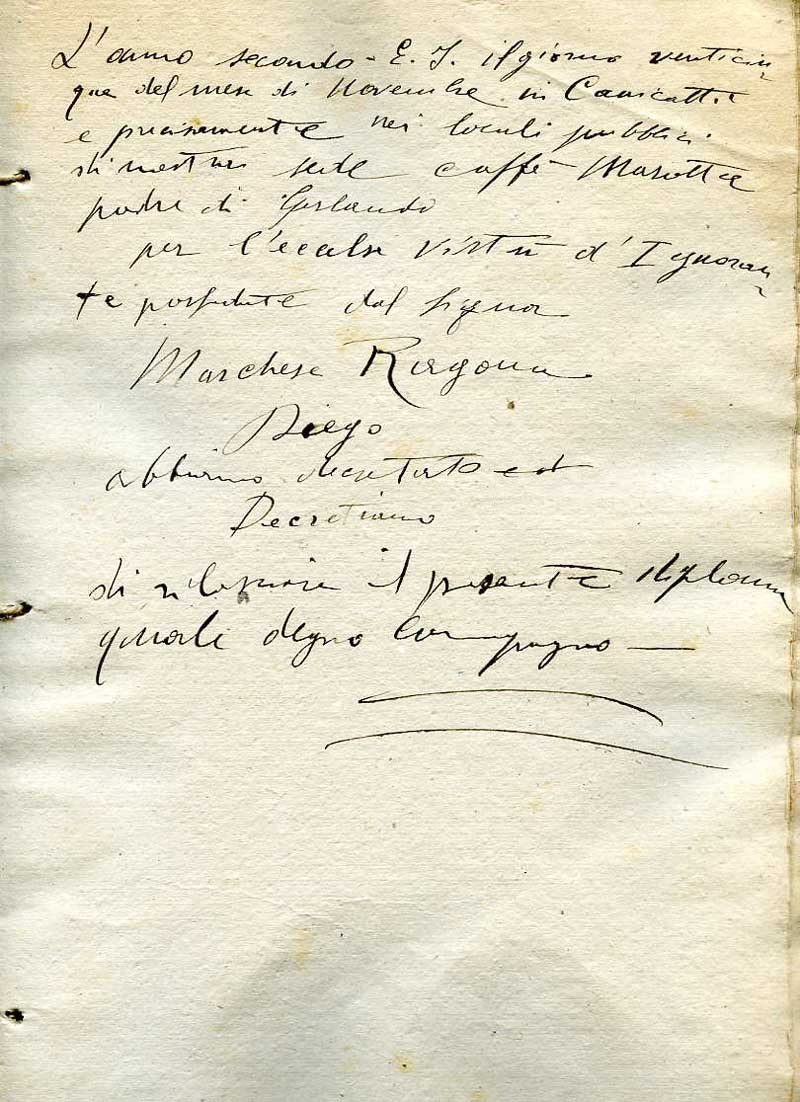 L'anno secondo - E. I. il giorno venticin
que del mese di Novembre in Canicattì
e precisamente nei locali pubblici
di nostra sede caffè Marotta
padre di Gerlando
per l'eccelse virtù d'Ignoran
te possedute dal Signor
Marchese Ragona
Diego
abbiamo decretato ed
Decretiamo
di rilasciare il presente diploma
quale degno Compagno